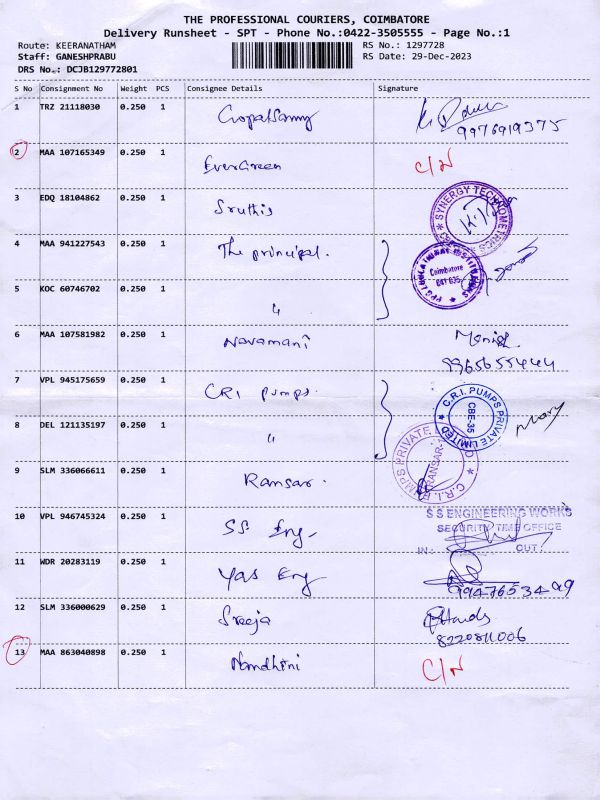 THE PROFESSIONAL COURIERS, COIMBATORE
Delivery Runsheet - SPT - Phone No.:0422-3505555 - Page No.:1
Route: KEERANATHAM RS No.: 1297728
Staff: GANESHPRABU RS Date: 29-Dec-2023
DRS No.: DCJB129772801
S No Consignment No Weight PCS Consignee Details Signature
1 TRZ 21118030 0.250 1 Gopalsamy
9976919375
2 MAA 107165349 0.250 1 EverGreen C/N
3 EDQ 18104862 0.250 1 Sruthis SYNERGY TECHNOMETRICS
4 MAA 941227543 0.250 1 The principal. Coimbatore
5 KOC 60746702 0.250 1 "
6 MAA 107581982 0.250 1 Navamani
9965655444
7 VPL 945175659 0.250 1 CRI pumps. C.R.I. PUMPS PRIVATE LIMITED CBE-35
8 DEL 121135197 0.250 1 "
9 SLM 336066611 0.250 1 Ransar.
10 VPL 946745324 0.250 1 SS Eng. S S ENGINEERING WORKS
SECURITY TIME OFFICE
IN: OUT:
11 WDR 20283119 0.250 1 Yas Eng
12 SLM 336000629 0.250 1 Sreeja
8220811006
13 MAA 863040898 0.250 1 Nandhini C/N